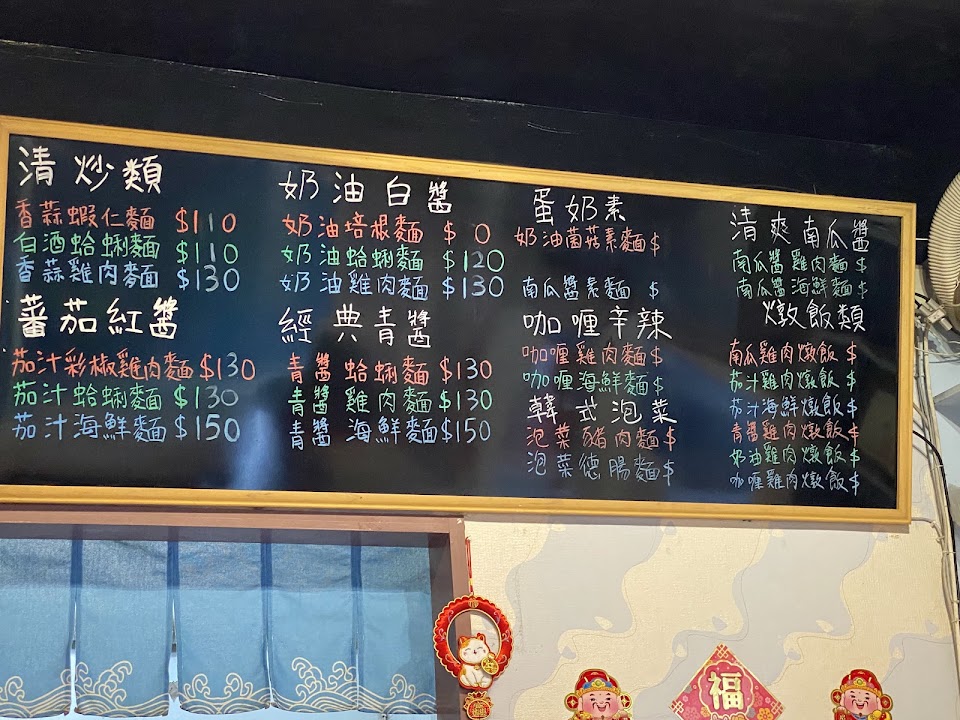 清炒類
香蒜蝦仁麵 $110
白酒蛤蜊麵 $110
香蒜雞肉麵 $130
蕃茄紅醬
茄汁彩椒雞肉麵 $130
茄汁蛤蜊麵 $130
茄汁海鮮麵 $150
奶油白醬
奶油培根麵 $ 0
奶油蛤蜊麵 $120
奶油雞肉麵 $130
經典青醬
青醬 蛤蜊麵 $130
青醬 雞肉麵 $130
青醬 海鮮麵 $150
蛋奶素
奶油菌菇素麵 $
南瓜醬素麵 $
咖喱辛辣
咖喱雞肉麵 $
咖喱海鮮麵 $
韓式泡菜
泡菜豬肉麵 $
泡菜德腸麵 $
清爽南瓜醬
南瓜醬雞肉麵 $
南瓜醬海鮮麵 $
燉飯類
南瓜雞肉燉飯 $
茄汁雞肉燉飯 $
茄汁海鮮燉飯 $
青醬雞肉燉飯 $
奶油雞肉燉飯 $
咖喱雞肉燉飯 $
福